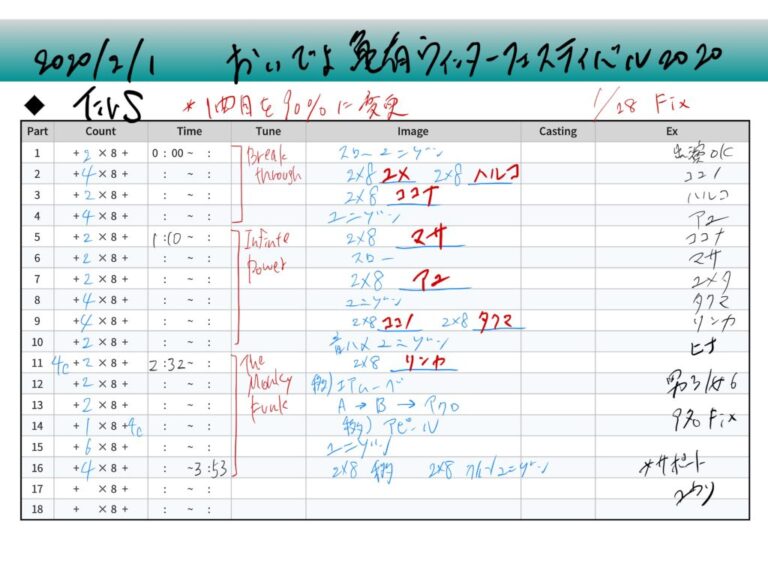 2020/2/1 おいでよ亀有ウィンターフェスティバル2020
◆ *1曲目を90%に変更 1/28 Fix
Part Count Time Tune Image Casting Ex
1 +2×8+ 0:00~ : Break through スローユニゾン 出演OK
2 +4×8+ : ~ : 2×8 ユメ 2×8 ハルコ ココノ
3 +2×8+ : ~ : 2×8 ココナ ハルコ
4 +4×8+ : ~ : ユニゾン アユ
5 +2×8+ 1:10~ : Infinite Power 2×8 マサ ココナ
6 +2×8+ : ~ : スロー マサ
7 +2×8+ : ~ : 2×8 アユ ユメタ
8 +4×8+ : ~ : ユニゾン タクマ
9 +4×8+ : ~ : 2×8 ココノ 2×8 タクマ リンカ
10 +2×8+ : ~ : 音ハメユニゾン ヒナ
11 4c+2×8+ 2:32~ : The Monkey Funk 2×8 リンカ
12 +2×8+ : ~ : 移)エアムーブ 男3/女6
13 +2×8+ : ~ : A→B→アクロ
14 +1×8+4c : ~ : 移)アピール 9名Fix
15 +6×8+ : ~ : ユニゾン
16 +4×8+ : ~3:53 2×8 移 2×8 ユニゾン *サポート
17 + ×8+ : ~ :
18 + ×8+ : ~ :